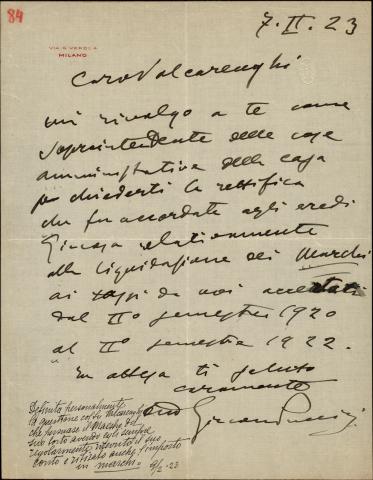 84
7. II. 23
VIA G. VERDI, 4
MILANO
Caro Valcarenghi
mi rivolgo a te come
Soprintendente delle cose
amministrative della casa
per chiederti la rettifica
che fu accordata agli eredi
Giacosa relativamente
alla liquidazione dei Marchi
ai saggi da noi accettati
dal II° semestre 1920
al II° semestre 1922.
In attesa ti saluto
caramente
tuo Giacomo Puccini
Definita personalmente
la questione col Sr
che persuase il Maestro del
suo torto avendo egli sempre
regolarmente riscosso il suo
conto e ritirato anche l'importo
in marchi - 9/2 - 23